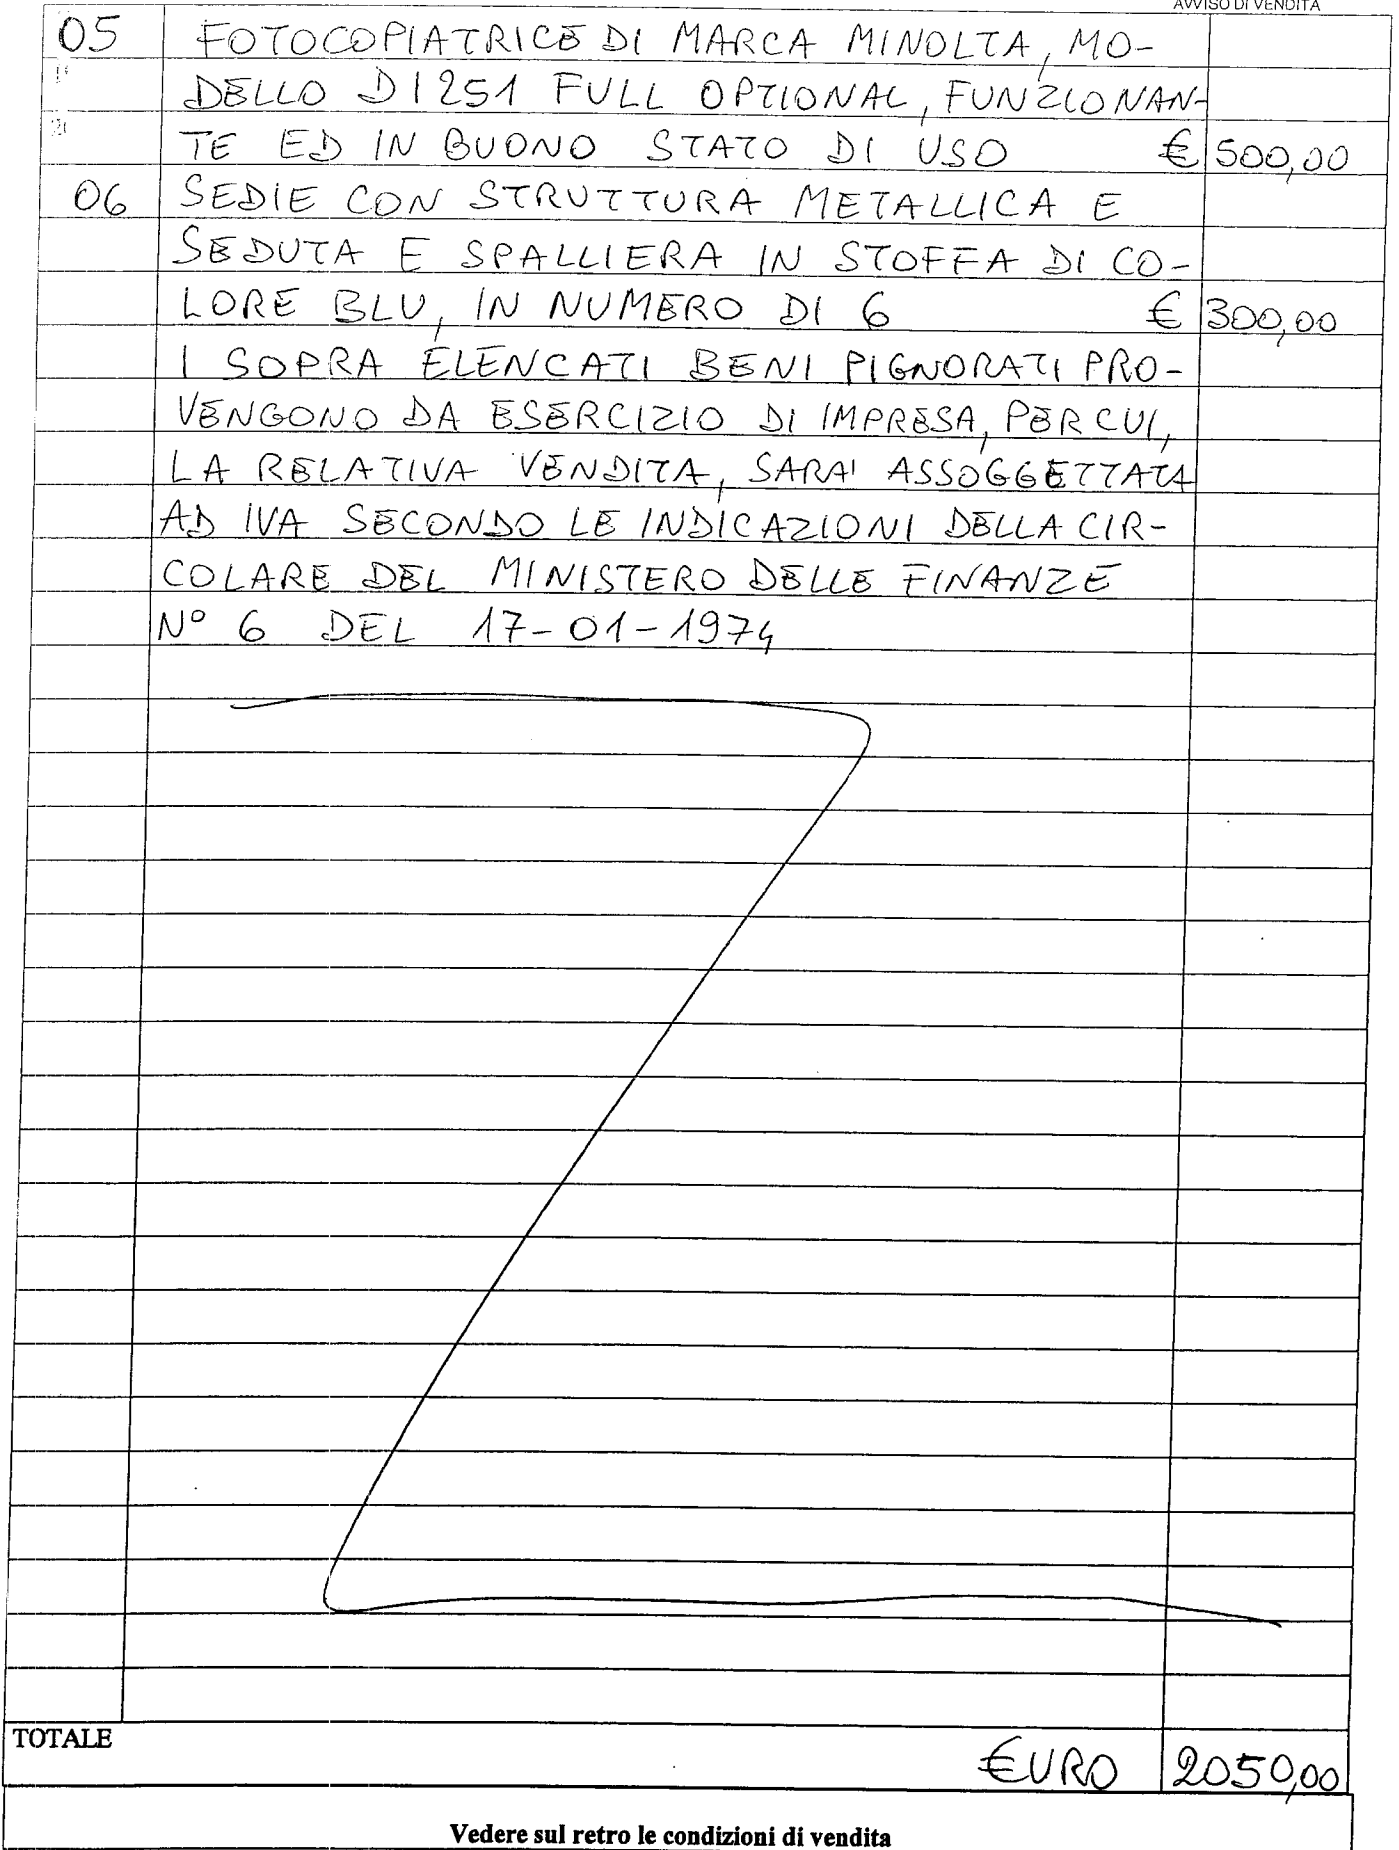 AVVISO DI VENDITA
05 FOTOCOPIATRICE DI MARCA MINOLTA, MO-
DELLO DI251 FULL OPTIONAL, FUNZIONAN-
TE ED IN BUONO STATO DI USO € 500,00
06 SEDIE CON STRUTTURA METALLICA E
SEDUTA E SPALLIERA IN STOFFA DI CO-
LORE BLU, IN NUMERO DI 6 € 300,00
I SOPRA ELENCATI BENI PIGNORATI PRO-
VENGONO DA ESERCIZIO DI IMPRESA, PER CUI,
LA RELATIVA VENDITA, SARA' ASSOGGETTATA
AD IVA SECONDO LE INDICAZIONI DELLA CIR-
COLARE DEL MINISTERO DELLE FINANZE
N° 6 DEL 17-01-1974
TOTALE €URO 2050,00
Vedere sul retro le condizioni di vendita